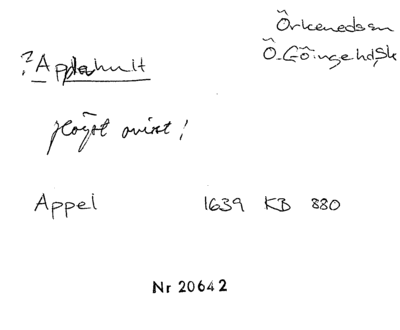 Örkeneds sn
Ö. Göinge hd, Sk
? Appelhult
Högst ovisst!
Appel 1639 KB 880
Nr 20642